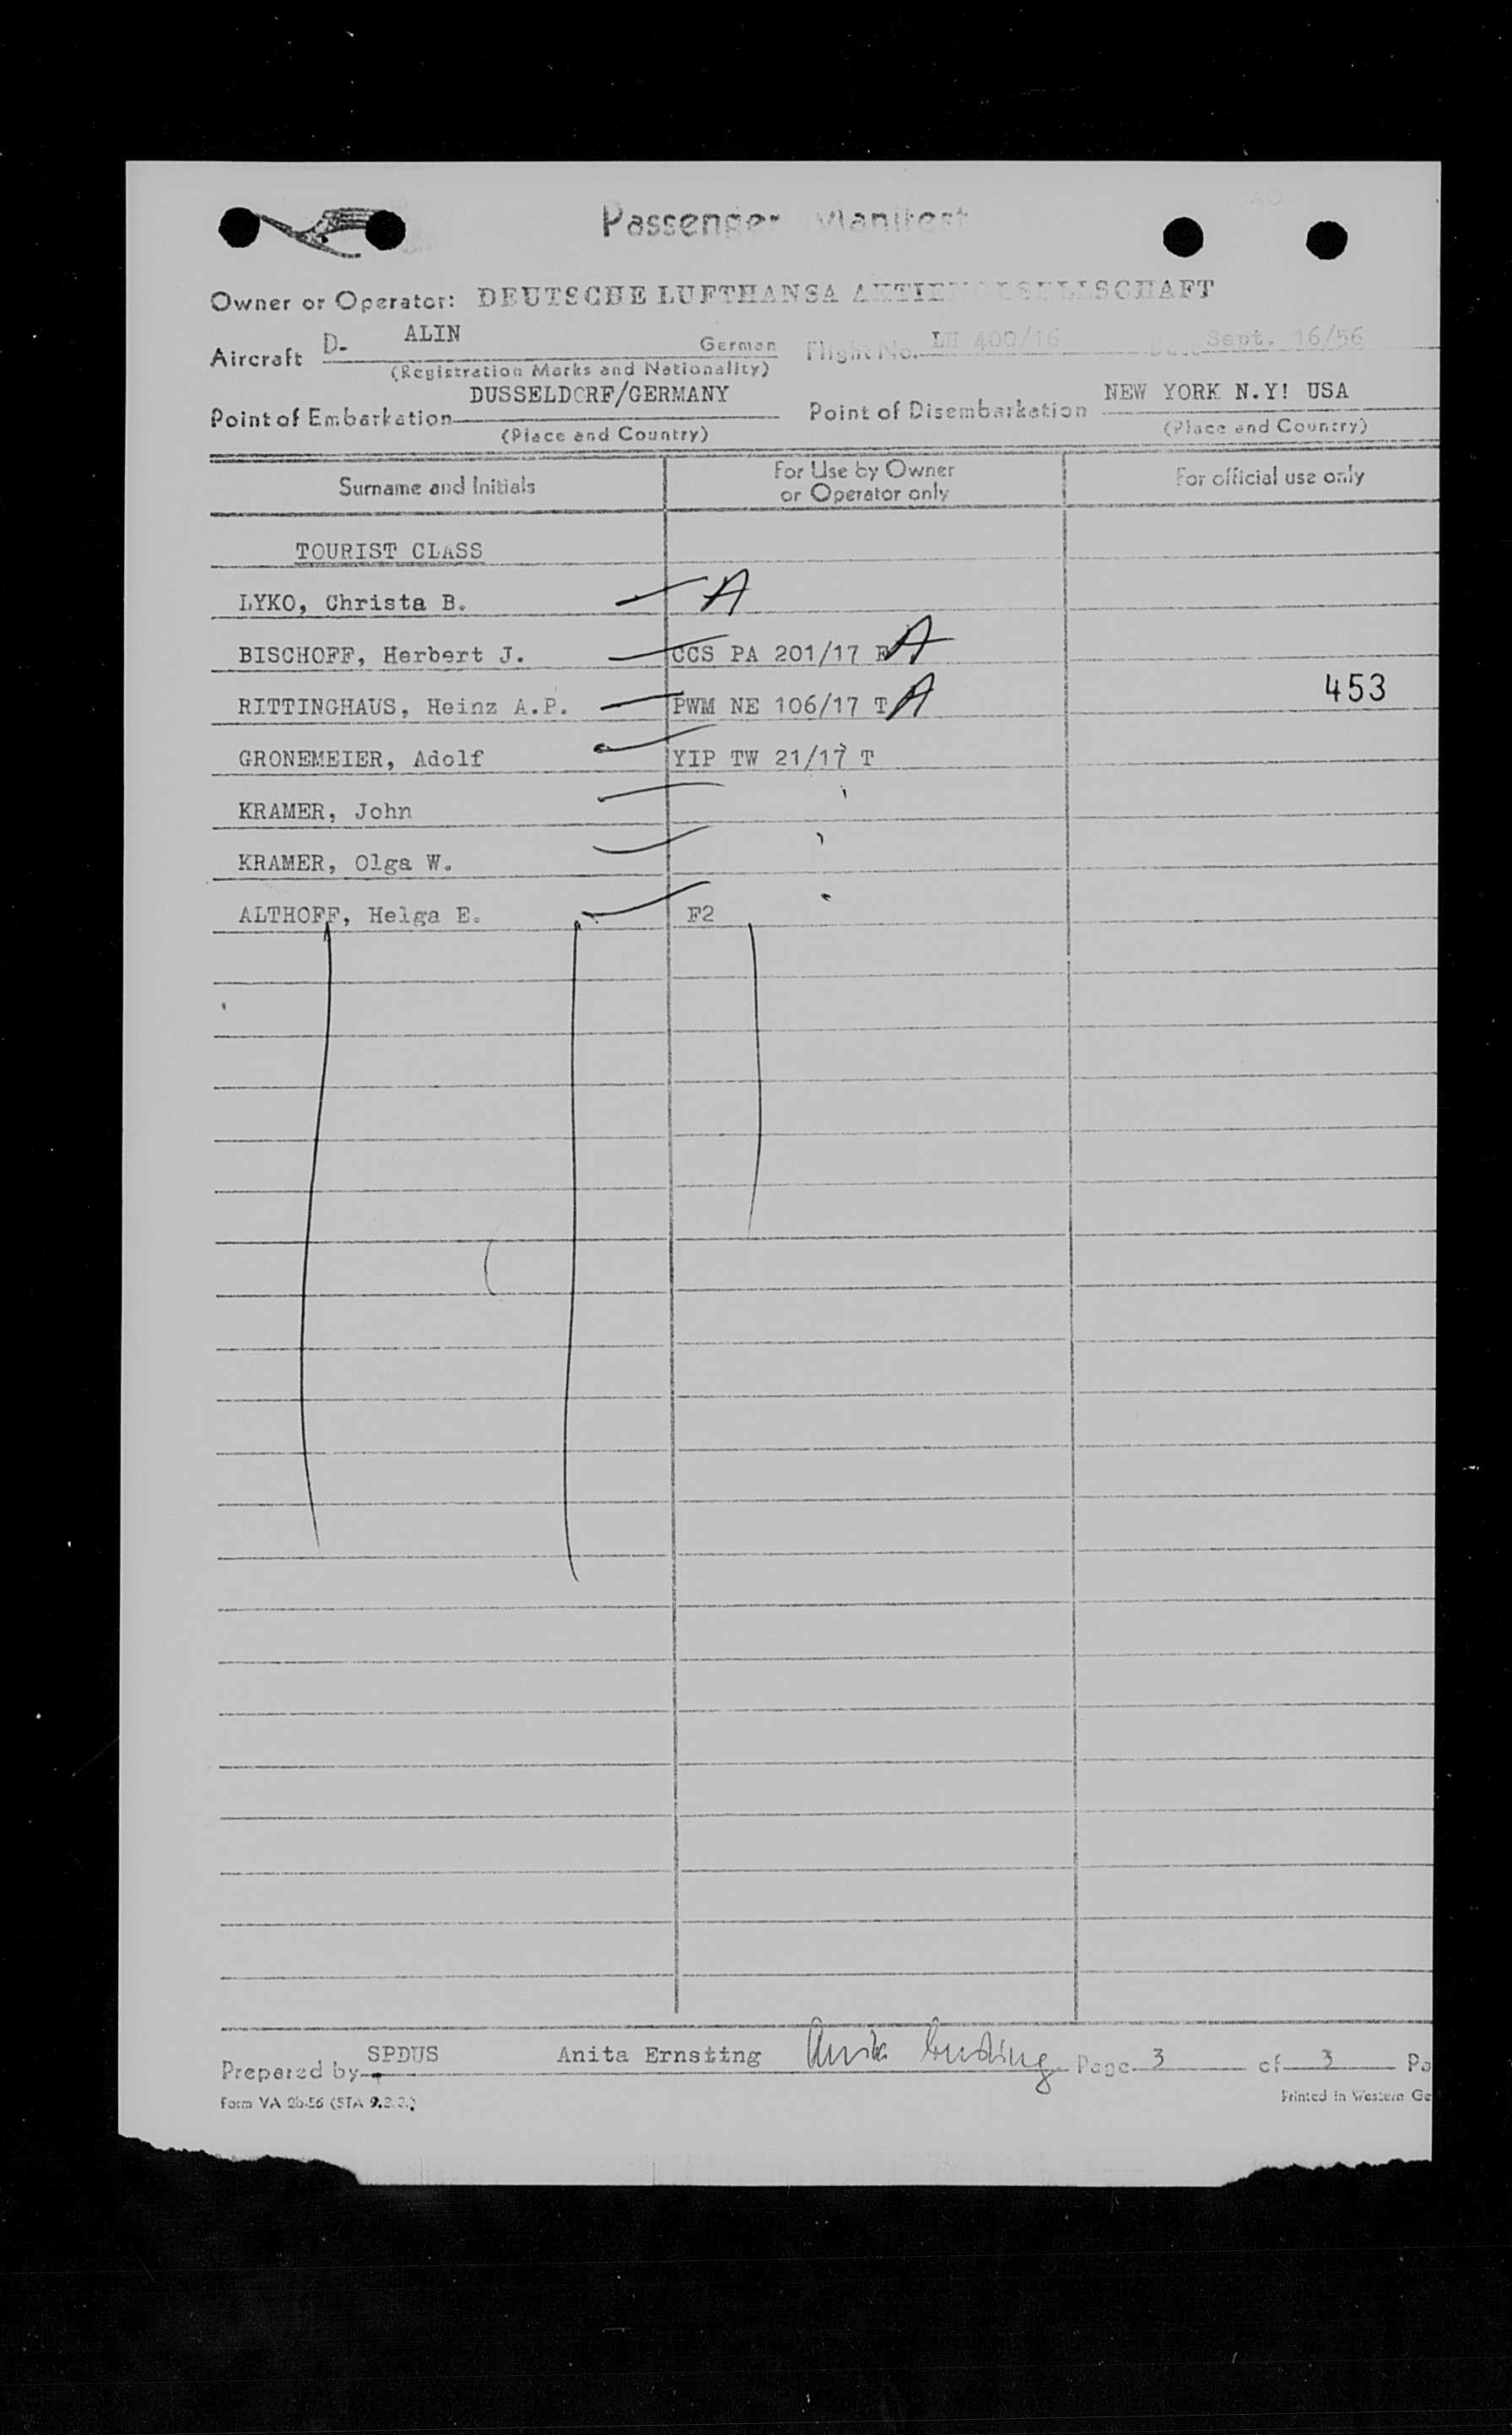 Passenger Manifest
Owner or Operator: DEUTSCHE LUFTHANSA AKTIENGESELLSCHAFT
Aircraft D- ALIN German Flight No. LH 400/16 Date Sept. 16/56
(Registration Marks and Nationality)
Point of Embarkation DUSSELDORF/GERMANY Point of Disembarkation NEW YORK N.Y! USA
(Place and Country) (Place and Country)
Surname and Initials For Use by Owner or Operator only For official use only
TOURIST CLASS
LYKO, Christa B. A
BISCHOFF, Herbert J. CCS PA 201/17 A
RITTINGHAUS, Heinz A.P. PWM NE 106/17 T A 453
GRONEMEIER, Adolf YIP TW 21/17 T
KRAMER, John
KRAMER, Olga W.
ALTHOFF, Helga E. F2
Prepared by SPDUS Anita Ernsting Anita Ernsting Page 3 of 3 Pa
Form VA 2b-56 (STA Printed in Western Ge